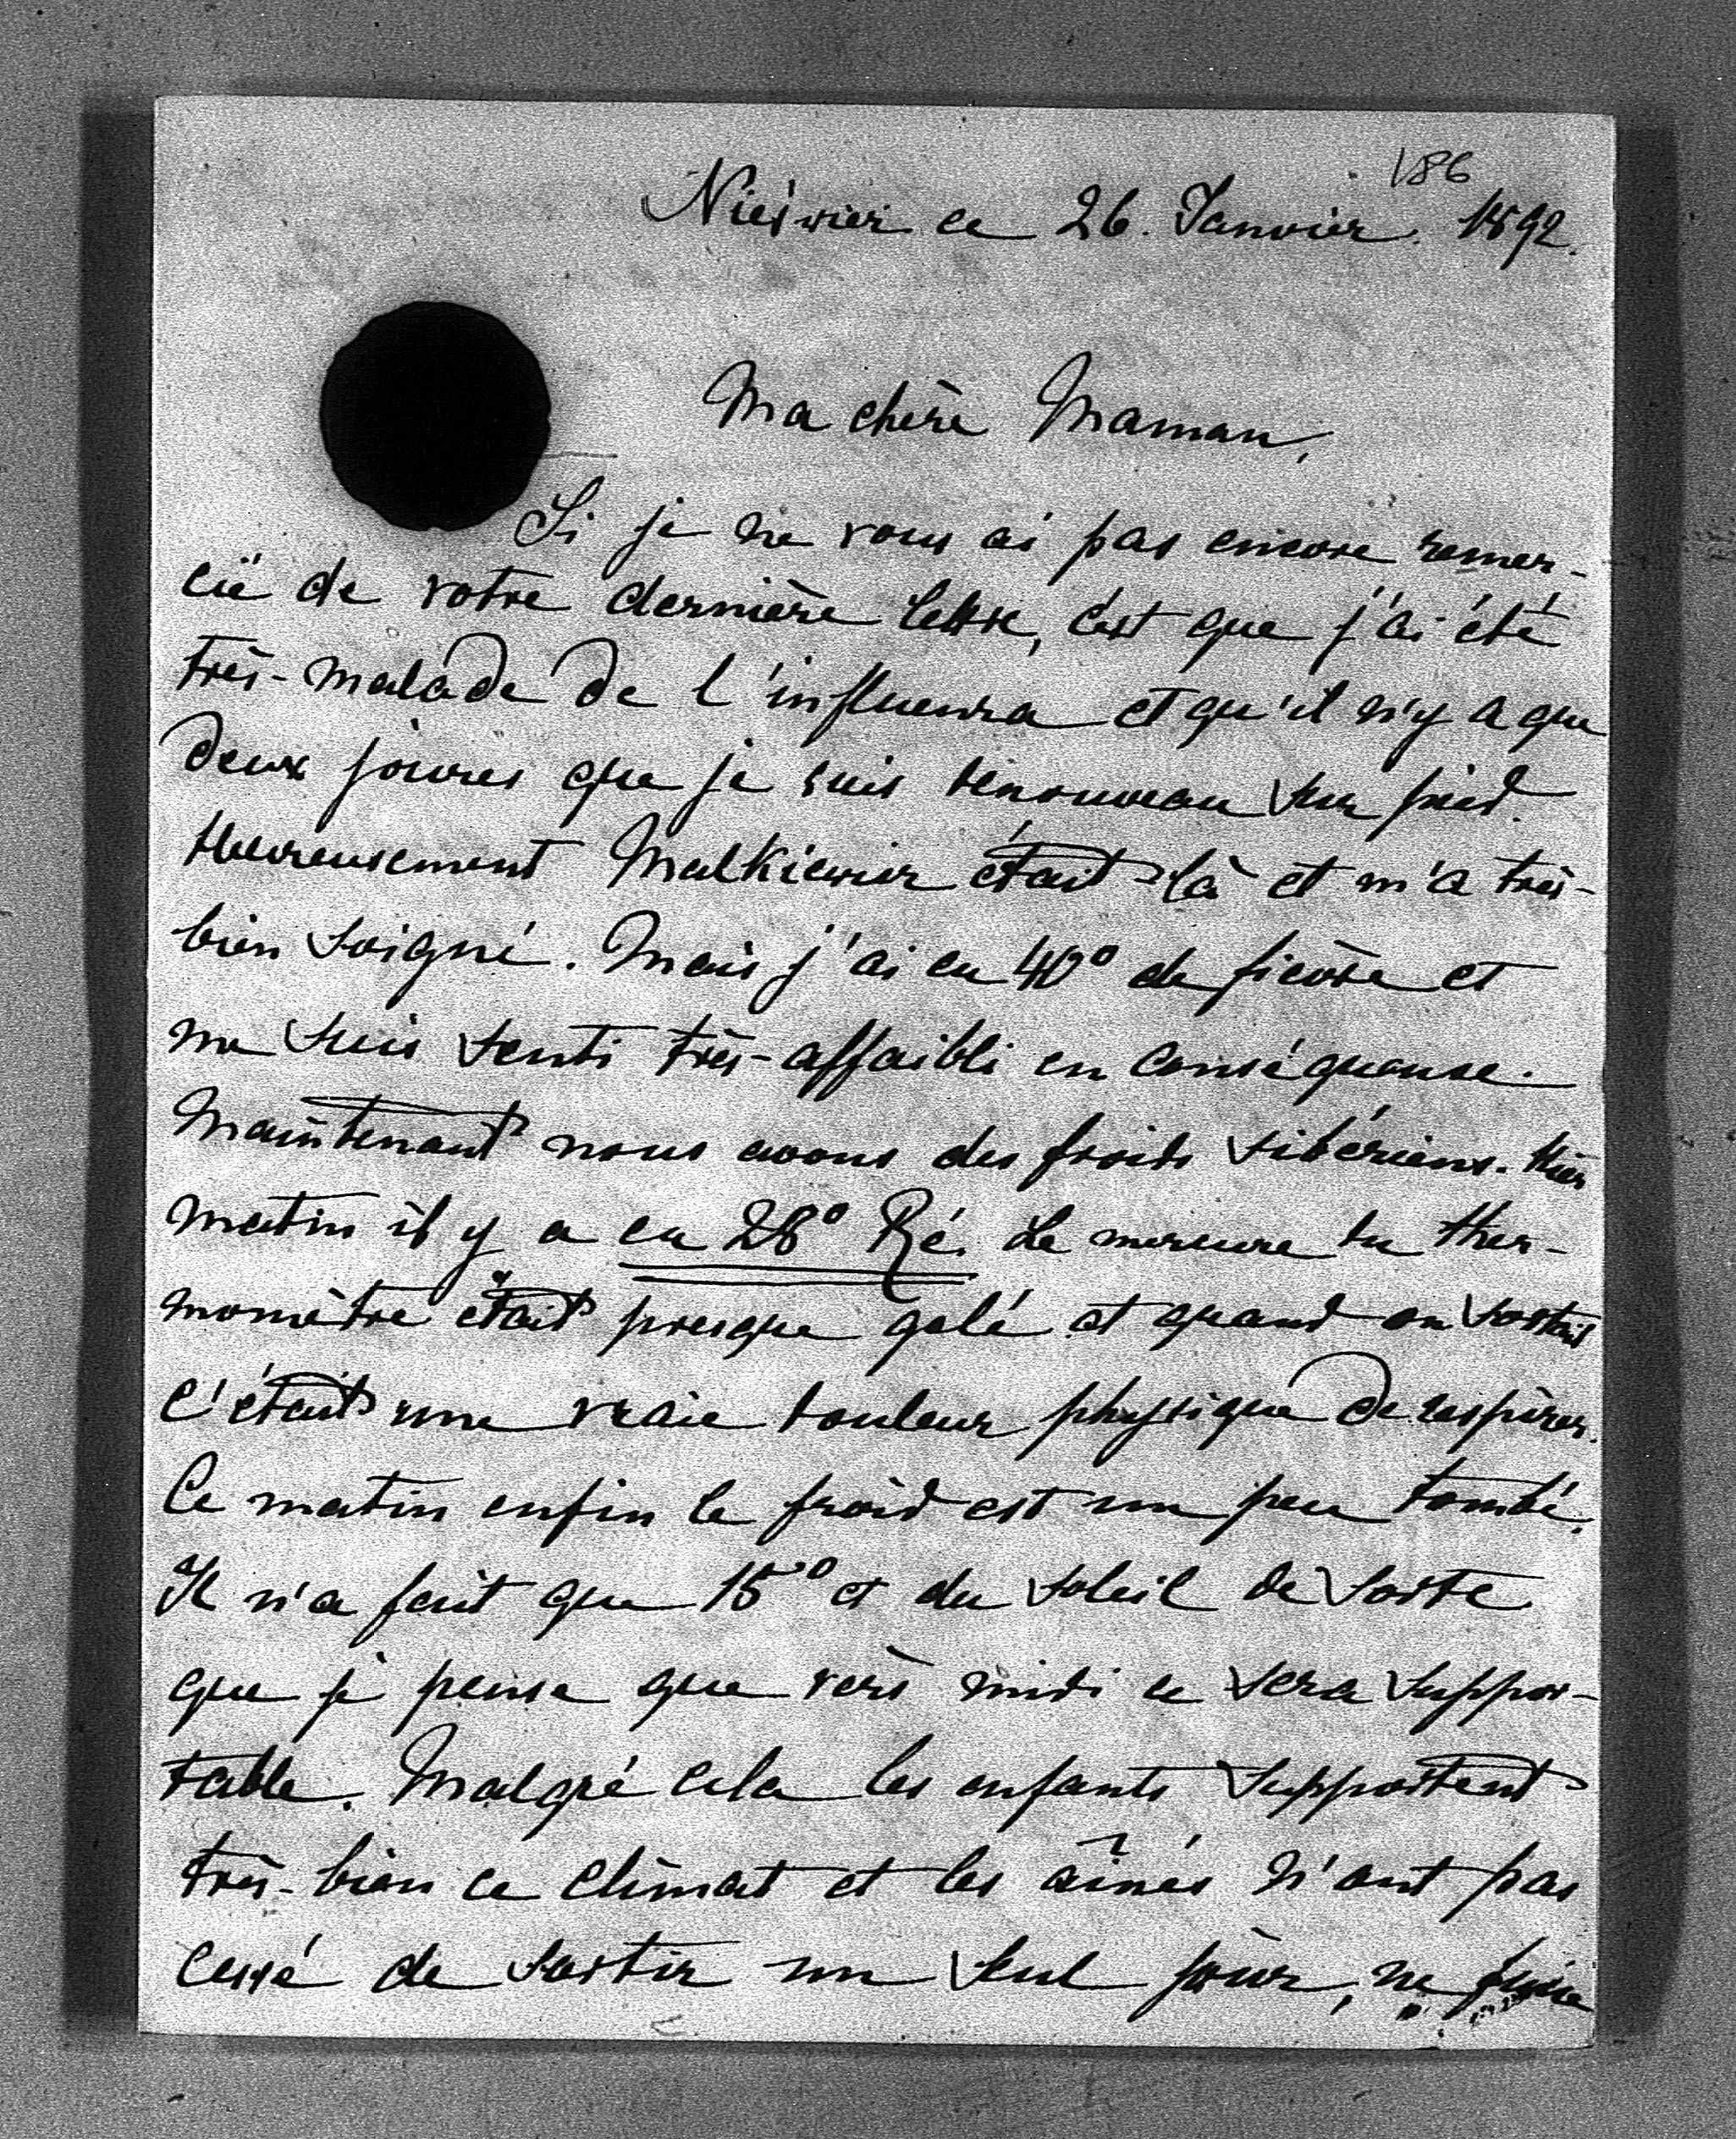 186
Nieświeź ce 26. Janvier. 1892.
Ma chère Maman,
Si je ne vous ai pas encore remer-
cié de votre dernière lettre, c'est que j'ai été
très-malade de l'influenza et qu'il n'y a que
deux jours que je suis de nouveau sur pied.
Heureusement Malkiewicz était là et m'a très-
bien soigné. Mais j'ai eu 40° de fièvre et
me suis senti très-affaibli en conséquence.
Maintenant nous avons des froids sibériens. Hier
matin il y a eu 28° Ré. Le mercure du ther-
momètre était presque gelé et quand on sortait
c'était une vraie douleur physique de respirer.
Ce matin enfin le froid est un peu tombé.
Il n'a fait que 15° et du soleil de sorte
que je pense que vers midi ce sera suppor-
table. Malgré cela les enfants supportent
très-bien ce climat et les aînés n'ont pas
cessé de sortir un seul jour, ne